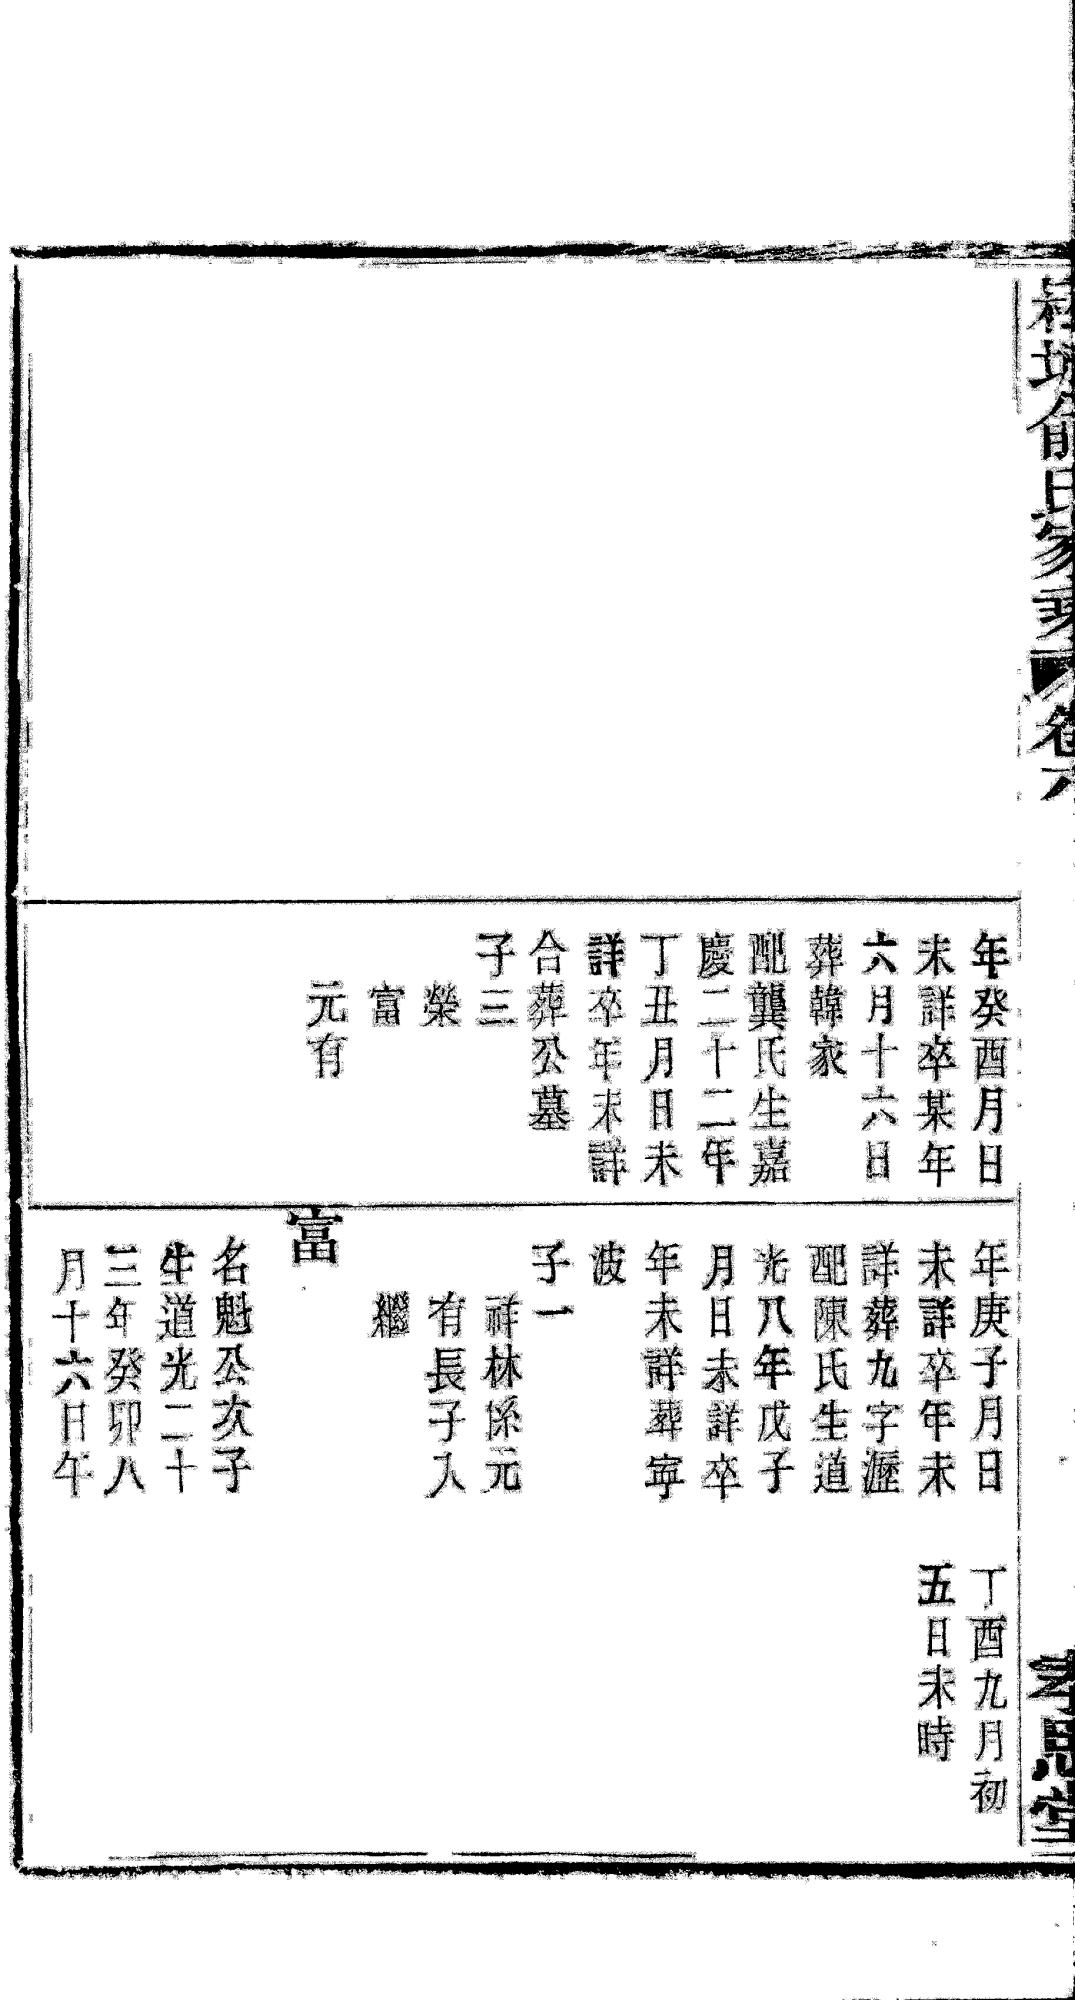 俞氏家乘 卷六
孝思堂
年癸酉月日
未詳卒某年
六月十六日
葬韓家
配龔氏生嘉
慶二十二年
丁丑月日未
詳卒年未詳
合葬公墓
子三
榮
富
元有
年庚子月日
未詳卒年未
詳葬九字瀝
配陳氏生道
光八年戊子
月日未詳卒
年未詳葬寧
波
子一
祥林係元
有長子入
繼
富
名魁公次子
生道光二十
三年癸卯八
月十六日午
丁酉九月初
五日未時